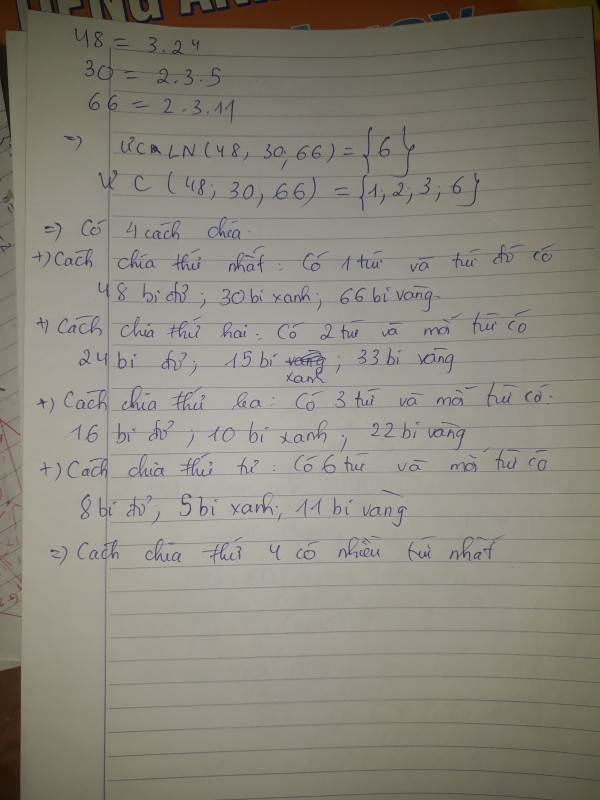 48 = 3.2⁴
30 = 2.3.5
66 = 2.3.11
=) ƯCLN(48; 30; 66) = {6}
ƯC (48; 30; 66) = {1; 2; 3; 6}
=) Có 4 cách chia.
+) Cách chia thứ nhất: Có 1 túi và túi đó có
48 bi đỏ; 30 bi xanh; 66 bi vàng.
+) Cách chia thứ hai: Có 2 túi và mỗi túi có
24 bi đỏ; 15 bi xanh; 33 bi vàng
+) Cách chia thứ ba: Có 3 túi và mỗi túi có:
16 bi đỏ; 10 bi xanh; 22 bi vàng
+) Cách chia thứ tư: Có 6 túi và mỗi túi có
8 bi đỏ; 5 bi xanh; 11 bi vàng
=) Cách chia thứ 4 có nhiều túi nhất